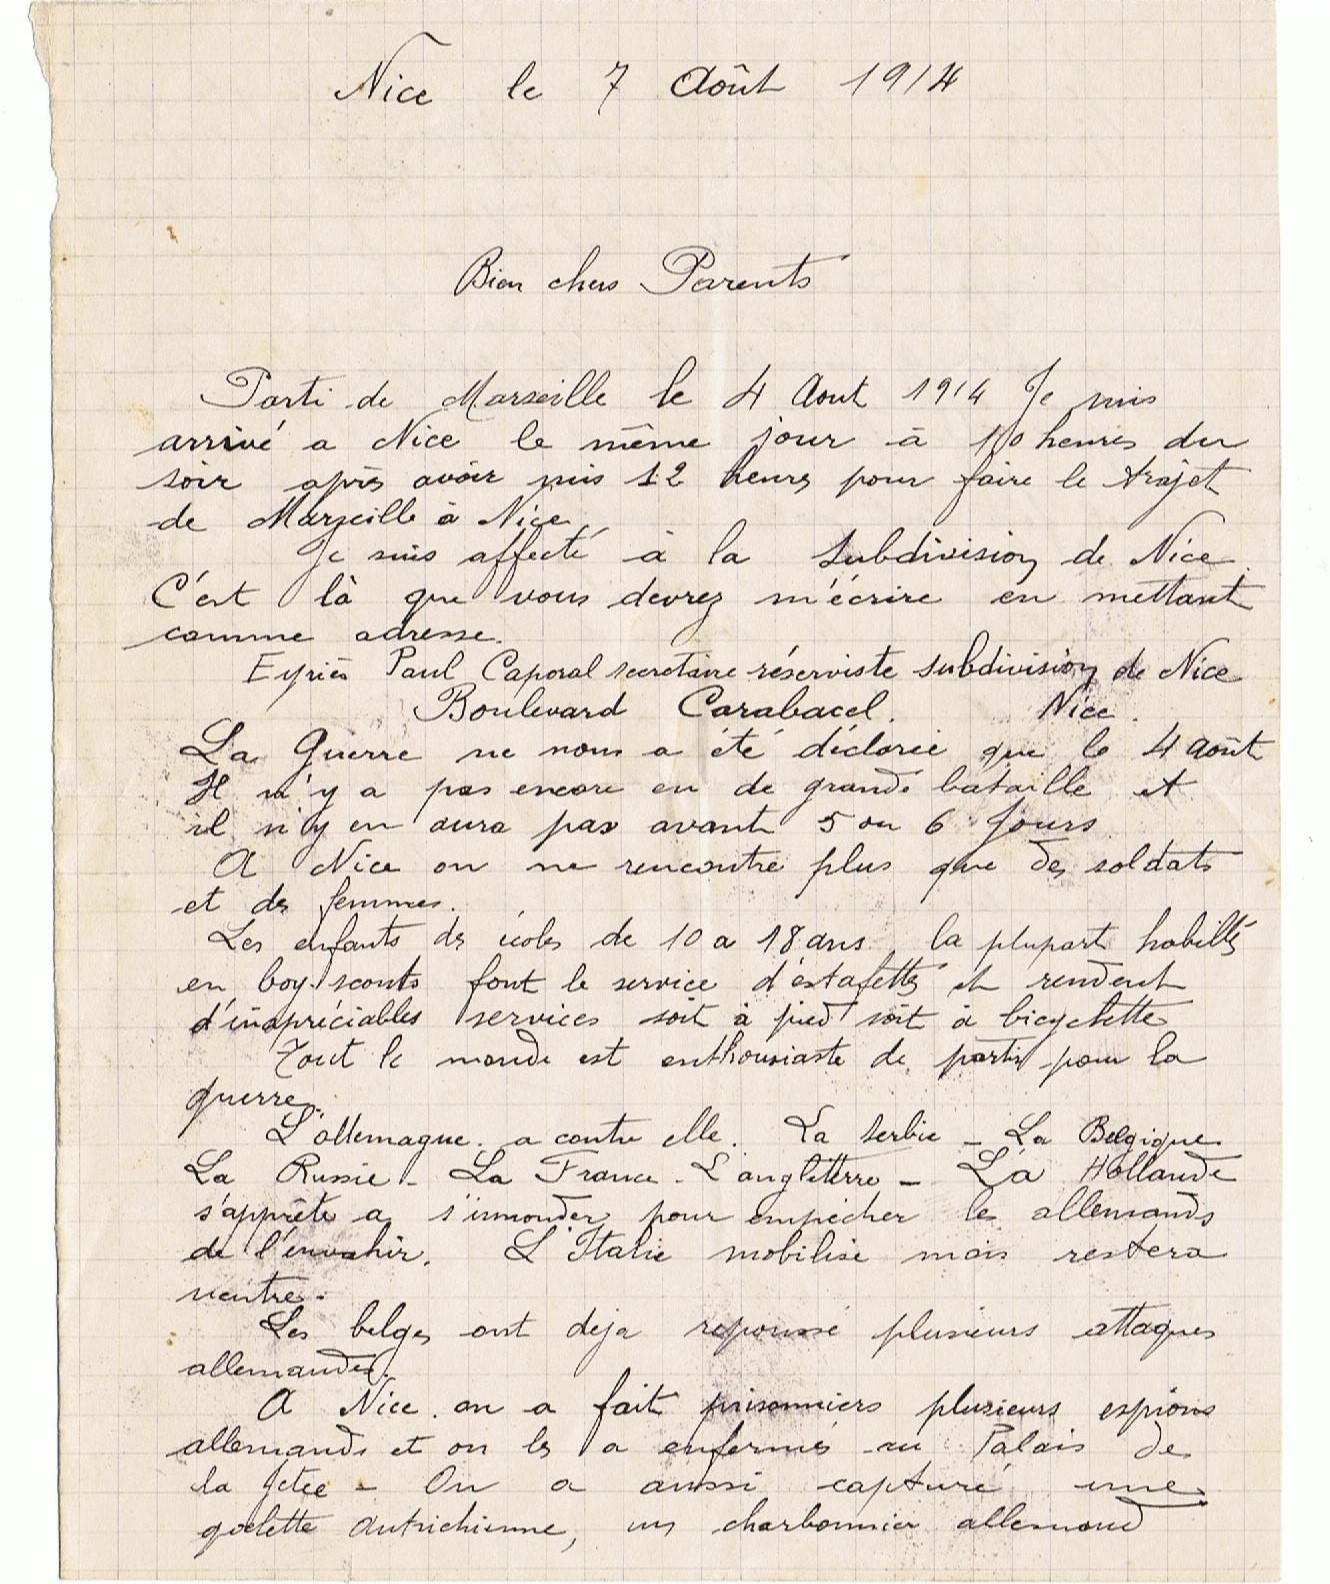 Nice le 7 Août 1914
Bien chers Parents
Parti de Marseille le 4 Aout 1914 Je suis
arrivé a Nice le même jour à 10 heures du
soir après avoir mis 12 heures pour faire le trajet
de Marseille à Nice
Je suis affecté à la subdivision de Nice.
C'est là que vous devrez m'écrire en mettant
comme adresse.
Eyriès Paul Caporal secretaire réserviste subdivision de Nice
Boulevard Carabacel. Nice.
La Guerre ne nous a été déclarée que le 4 août
Il n'y a pas encore eu de grande bataille et
il n'y en aura pas avant 5 ou 6 jours
A Nice on ne rencontre plus que des soldats
et des femmes.
Les enfants des écoles de 10 a 18 ans la plupart habillés
en boy-scouts font le service d'estafettes et rendent
d'inapréciables services soit à pied soit à bicyclette
Tout le monde est enthousiaste de partir pour la
guerre.
L'allemagne. a contre elle. La Serbie - La Belgique
La Russie - La France - L'angleterre - La Hollande
s'apprête a s'innonder pour empécher les allemands
de l'envahir. L'Italie mobilise mais restera
neutre.
Les belges ont deja repoussé plusieurs attaques
allemandes.
A Nice. on a fait prisonniers plusieurs espions
allemands et on les a enfermés au Palais de
la jetée - On a aussi capturé une
goelette autrichienne, un charbonnier allemand